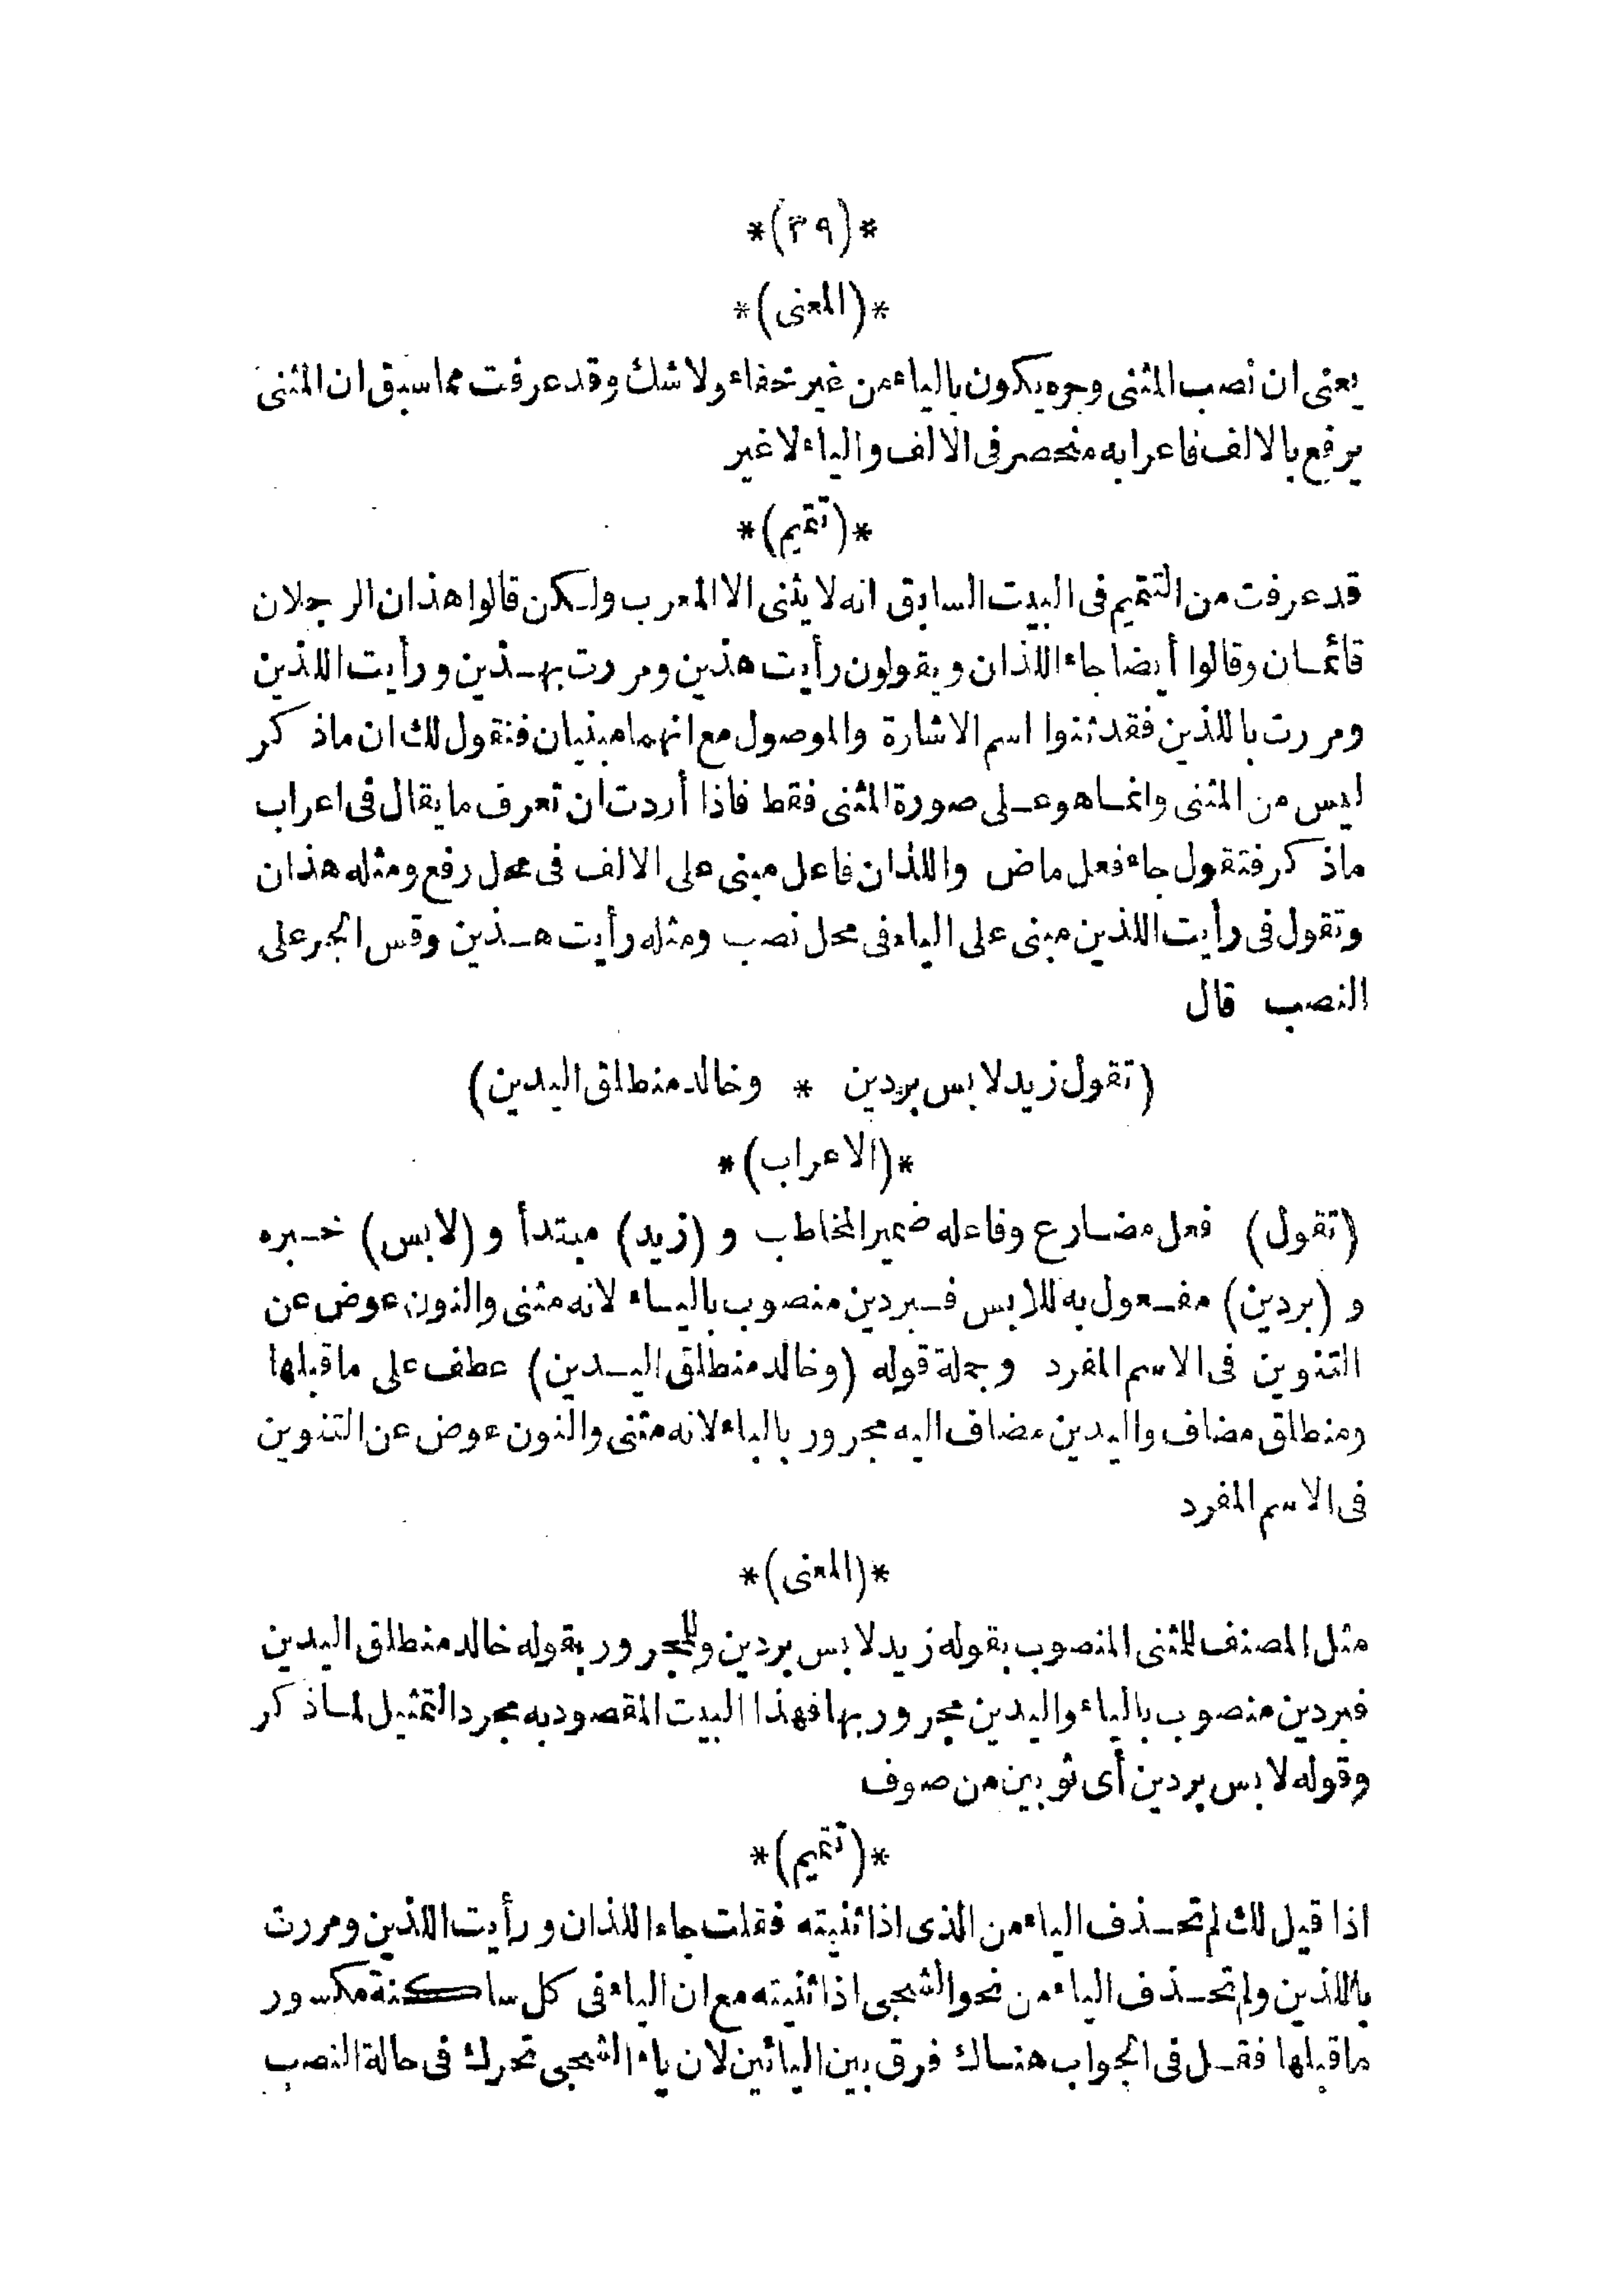 *(٣٩)*
*(المعنى)*
يعنى ان نصب المثنى وجره يكون بالياء من غير خفاء ولا شك وقد عرفت مما سبق ان المثنى
يرفع بالالف فاعرابه منحصر فى الالف والياء لا غير
*(تتميم)*
قد عرفت من التتميم فى البيت السابق انه لا يثنى الا المعرب ولكن قالوا هذان الرجلان
قائمان وقالوا أيضا جاء اللذان ويقولون رأيت هذين ومررت بهذين ورأيت اللذين
ومررت باللذين فقد ثنوا اسم الاشارة والموصول مع انهما مبنيان فنقول لك ان ماذكر
ليس من المثنى وانما هو على صورة المثنى فقط فاذا أردت ان تعرف ما يقال فى اعراب
ماذكر فتقول جاء فعل ماض واللذان فاعل مبنى على الالف فى محل رفع ومثله هذان
وتقول فى رأيت اللذين مبنى على الياء فى محل نصب ومثله رأيت هذين وقس الجر على
النصب قال
(تقول زيد لابس بردين * وخالد منطلق اليدين)
*(الاعراب)*
(تقول) فعل مضارع وفاعله ضمير المخاطب و (زيد) مبتدأ و (لابس) خبره
و (بردين) مفعول به للابس فبردين منصوب بالياء لانه مثنى والنون عوض عن
التنوين فى الاسم المفرد وجملة قوله (وخالد منطلق اليدين) عطف على ماقبلها
ومنطلق مضاف واليدين مضاف اليه مجرور بالياء لانه مثنى والنون عوض عن التنوين
فى الاسم المفرد
*(المعنى)*
مثل المصنف للمثنى المنصوب بقوله زيد لابس بردين وللمجرور بقوله خالد منطلق اليدين
فبردين منصوب بالياء واليدين مجرور بها فهذا البيت المقصود به مجرد التمثيل لماذكر
وقوله لابس بردين أى ثوبين من صوف
*(تتميم)*
اذا قيل لك لم تحذف الياء من الذى اذا ثنيته فقلت جاء اللذان ورأيت اللذين ومررت
باللذين ولم تحذف الياء من نحو الشجى اذا ثنيته مع ان الياء فى كل ساكنة مكسور
ما قبلها فقل فى الجواب هناك فرق بين اليائين لان ياء الشجى تحرك فى حالة النصب